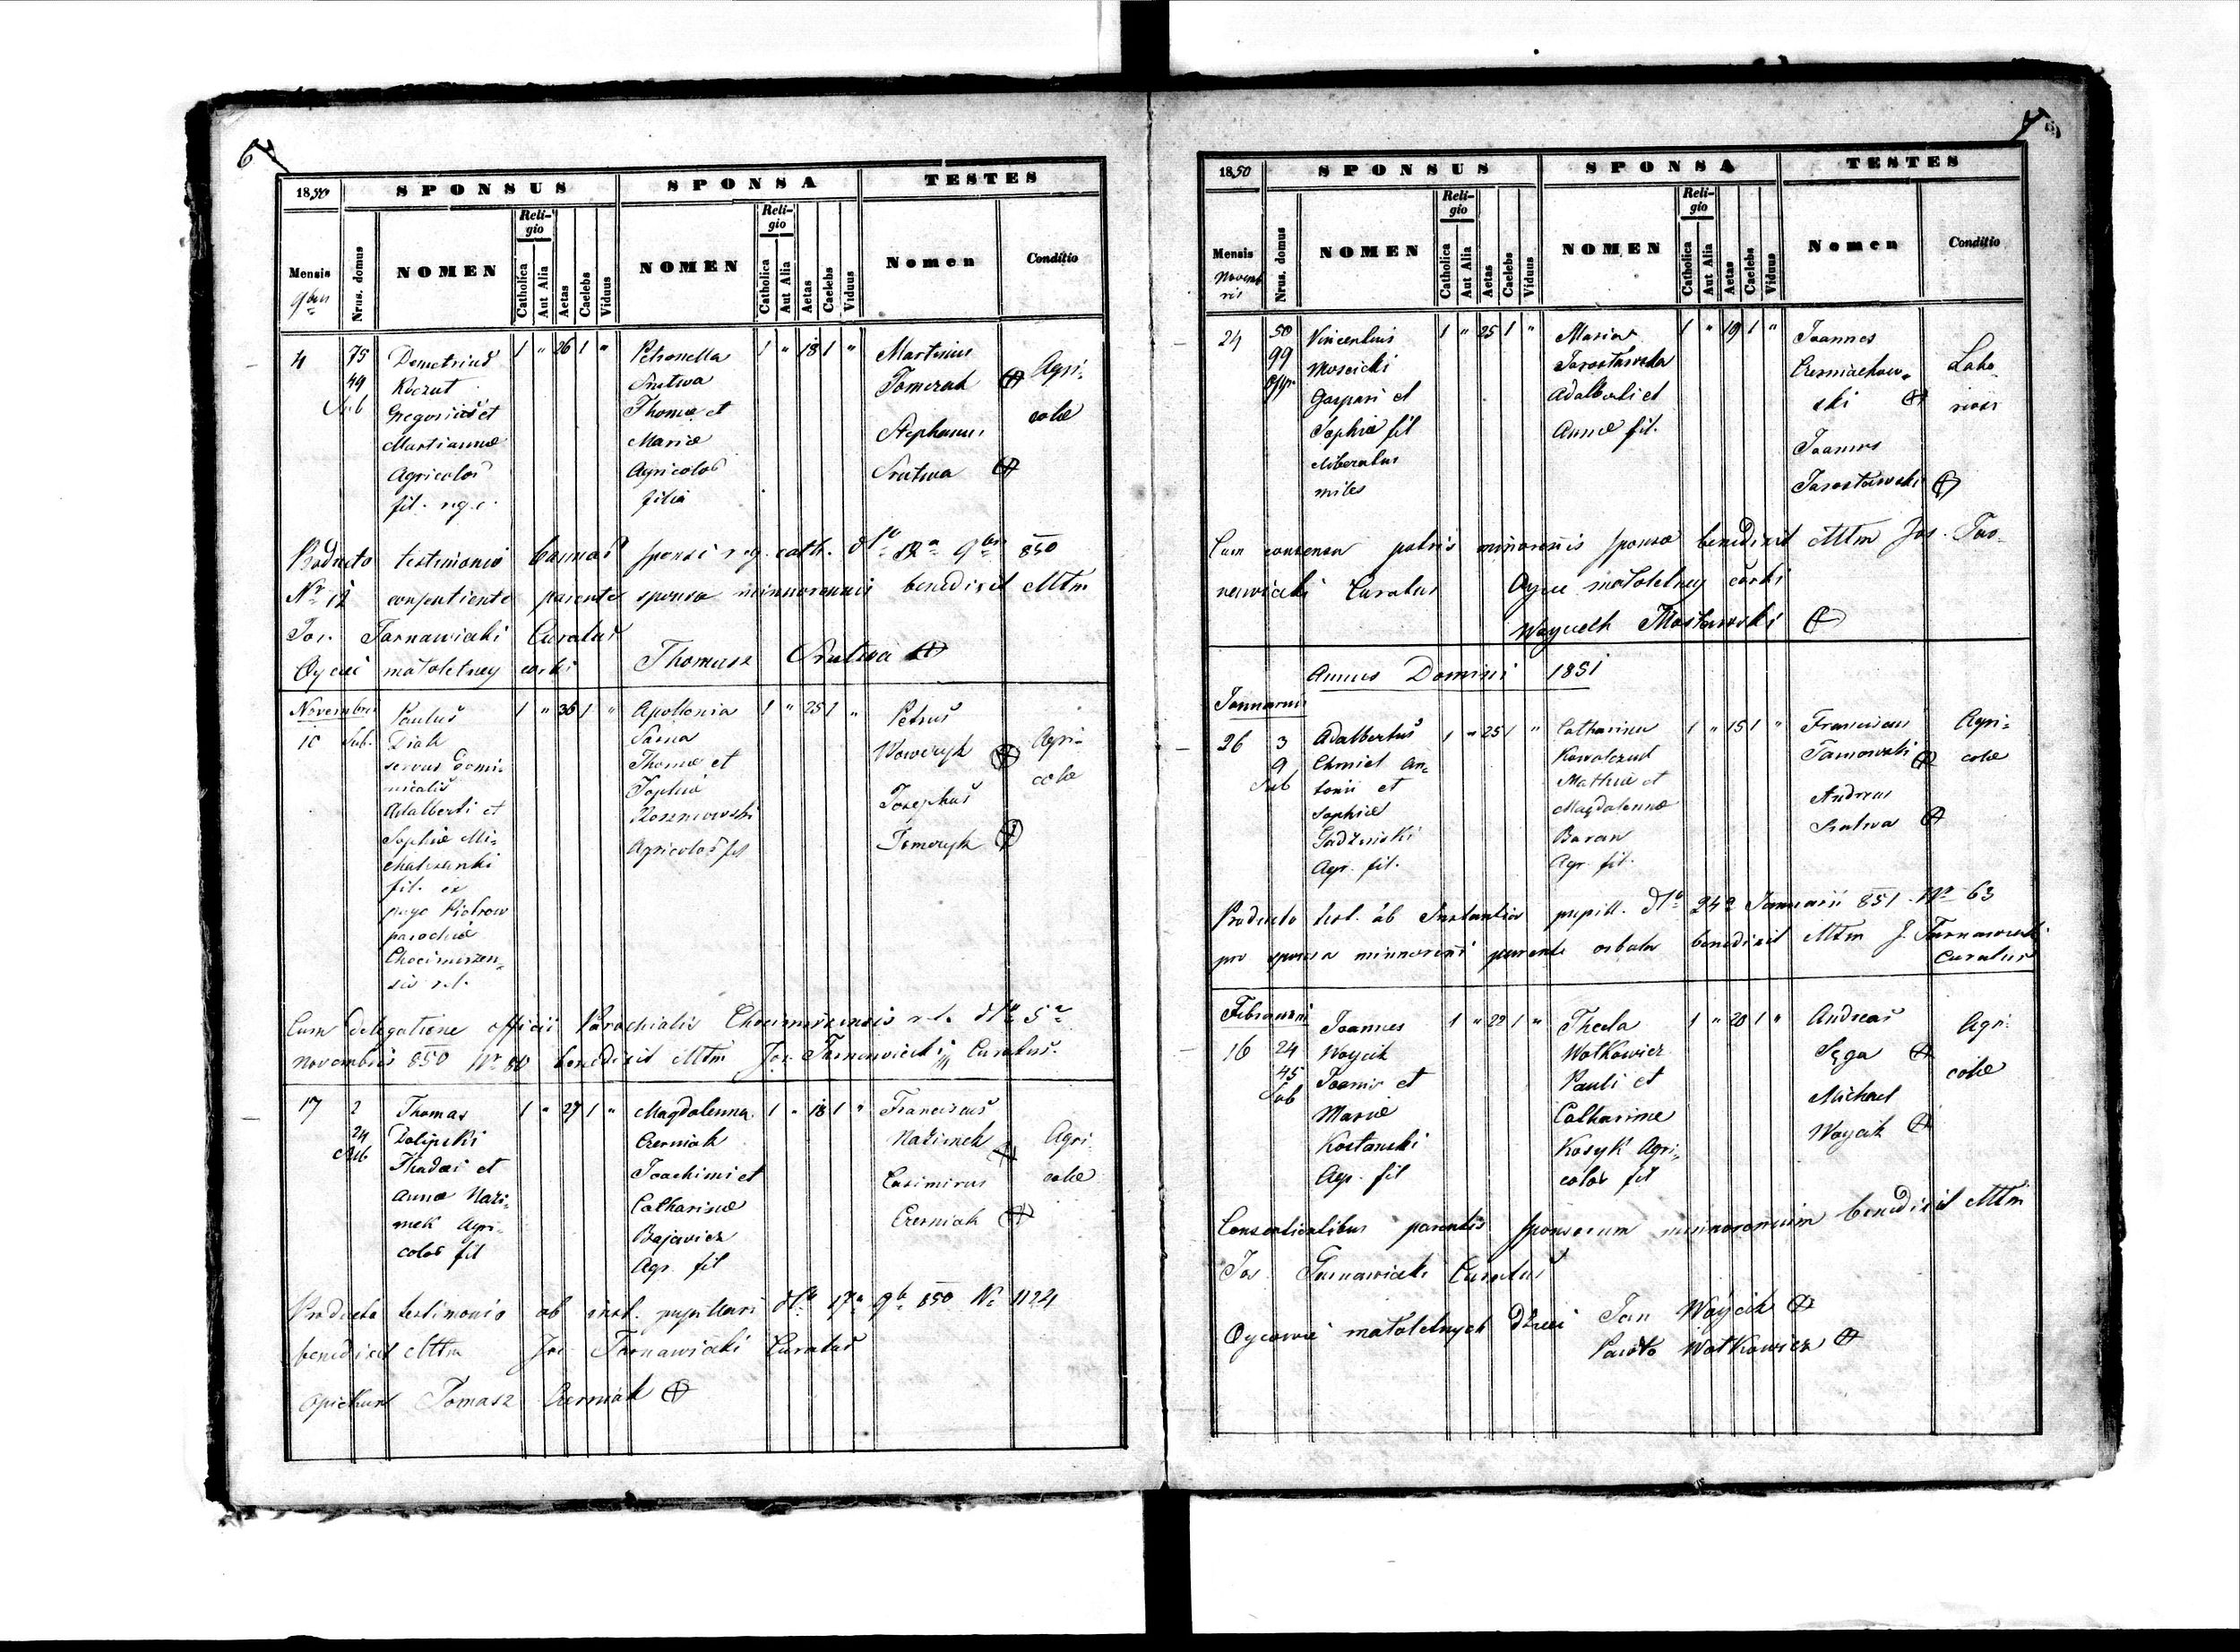 6
1850 SPONSUS SPONSA TESTES
Mensis 9bris
Nrus. domus
NOMEN
Religio
Catholica
Aut Alia
Aetas
Caelebs
Viduus
NOMEN
Religio
Catholica
Aut Alia
Aetas
Caelebs
Viduus
Nomen
Conditio
4
75
49
Sub
Demetrius
Koczut
Gregorii et
Martianna
Agricolae
fil. r.g.c.
1 " 26 1 "
Petronella
Srutwa
Thomae et
Mariae
Agricolae
filia
1 " 18 1 "
Martinus
Tomczak
Stephanus
Srutwa
Agri-
colae
Producto testimonio bannos sponsi r.g. cath. dto 9bris 850
Nr 12 consentiente parente sponsa minnorennis benedixit Mtm
Jos. Tarnawiecki Curatus
Oyciec małoletney corki Thomasz Srutwa
Novembris
10 Sub.
Paulus
Diak
servus domi-
nicalis
Adalberti et
Sophiae Mi-
chalczanki
fil. ex
pago Piotrow
parochiae
Chocimirzen-
sis r.l.
1 " 36 1 "
Apollonia
Sarna
Thomae et
Sophia
Rozniowski
Agricolae fil
1 " 25 1 "
Petrus
Wawczyk
Josephus
Tomczyk
Agri-
colae
Cum delegatione officii Parochialis Chocimirzensis r.l. dto 5a
novembris 850 Nr 60 benedixit Mtm Jos. Tarnawiecki Curatus.
17
2
24
Sub
Thomas
Dolipski
Thadaei et
Annae Nazi-
mek Agri-
colae fil
1 " 27 1 "
Magdalenna
Czerniak
Joachimi et
Catharinae
Bojawicz
Agr. fil
1 " 18 1 "
Franciscus
Nazimek
Casimirus
Czerniak
Agri-
colae
Producto testimonio ab inst. pupillari dto 17a 9b 850 Nr 1124
benedixit Mtm Jos Tarnawiecki Curatus
Opiekun Tomasz Czerniak
1850 SPONSUS SPONSA TESTES
Mensis Novembris
Nrus. domus
NOMEN
Religio
Catholica
Aut Alia
Aetas
Caelebs
Viduus
NOMEN
Religio
Catholica
Aut Alia
Aetas
Caelebs
Viduus
Nomen
Conditio
24
50
99
Vincentius
Moscicki
Gaspari et
Sophiae fil
liberatus
miles
1 " 25 1 "
Maria
Jarosławska
Adalberti et
Annae fil.
1 " 19 1 "
Joannes
Czerniachow-
ski
Joannes
Jarosławski
Labo-
riosi
Cum consensu patris minorennis sponsae benedixit Mtm Jos. Tar-
nawiecki Curatus Oyciec małoletney córki
Woyciech
Annus Domini 1851
Januarius
26
3
9
Sub
Adalbertus
Chmiel An-
tonii et
Sophiae
Agr. fil.
1 " 25 1 "
Catharina
Kowalczuk
Mathiae et
Magdalennae
Baran
Agr. fil.
1 " 15 1 "
Franciscus
Tarnowski
Andreas
Srutwa
Agri-
colae
Producto test. ab Instantia pupill. dto 24a Januarii 851. Nr 63
pro sponsa minnoreni parente orbata benedixit Mtm J. Tarnawiecki
Curatus
Februarii
16
24
45
Sub
Joannes
Woycik
Joannis et
Mariae
Kostanski
Agr. fil
1 " 22 1 "
Thecla
Wołkowicz
Pauli et
Catharinae
Kosyk Agri-
colae fil
1 " 20 1 "
Andreas
Sęga
Michael
Woycik
Agri-
colae
Consentientibus parentis sponsorum minnorennium benedixit Mtm
Jos Tarnawiecki Curatus
Oycowie małoletnych dzieci Jan Woycik
Wołkowicz